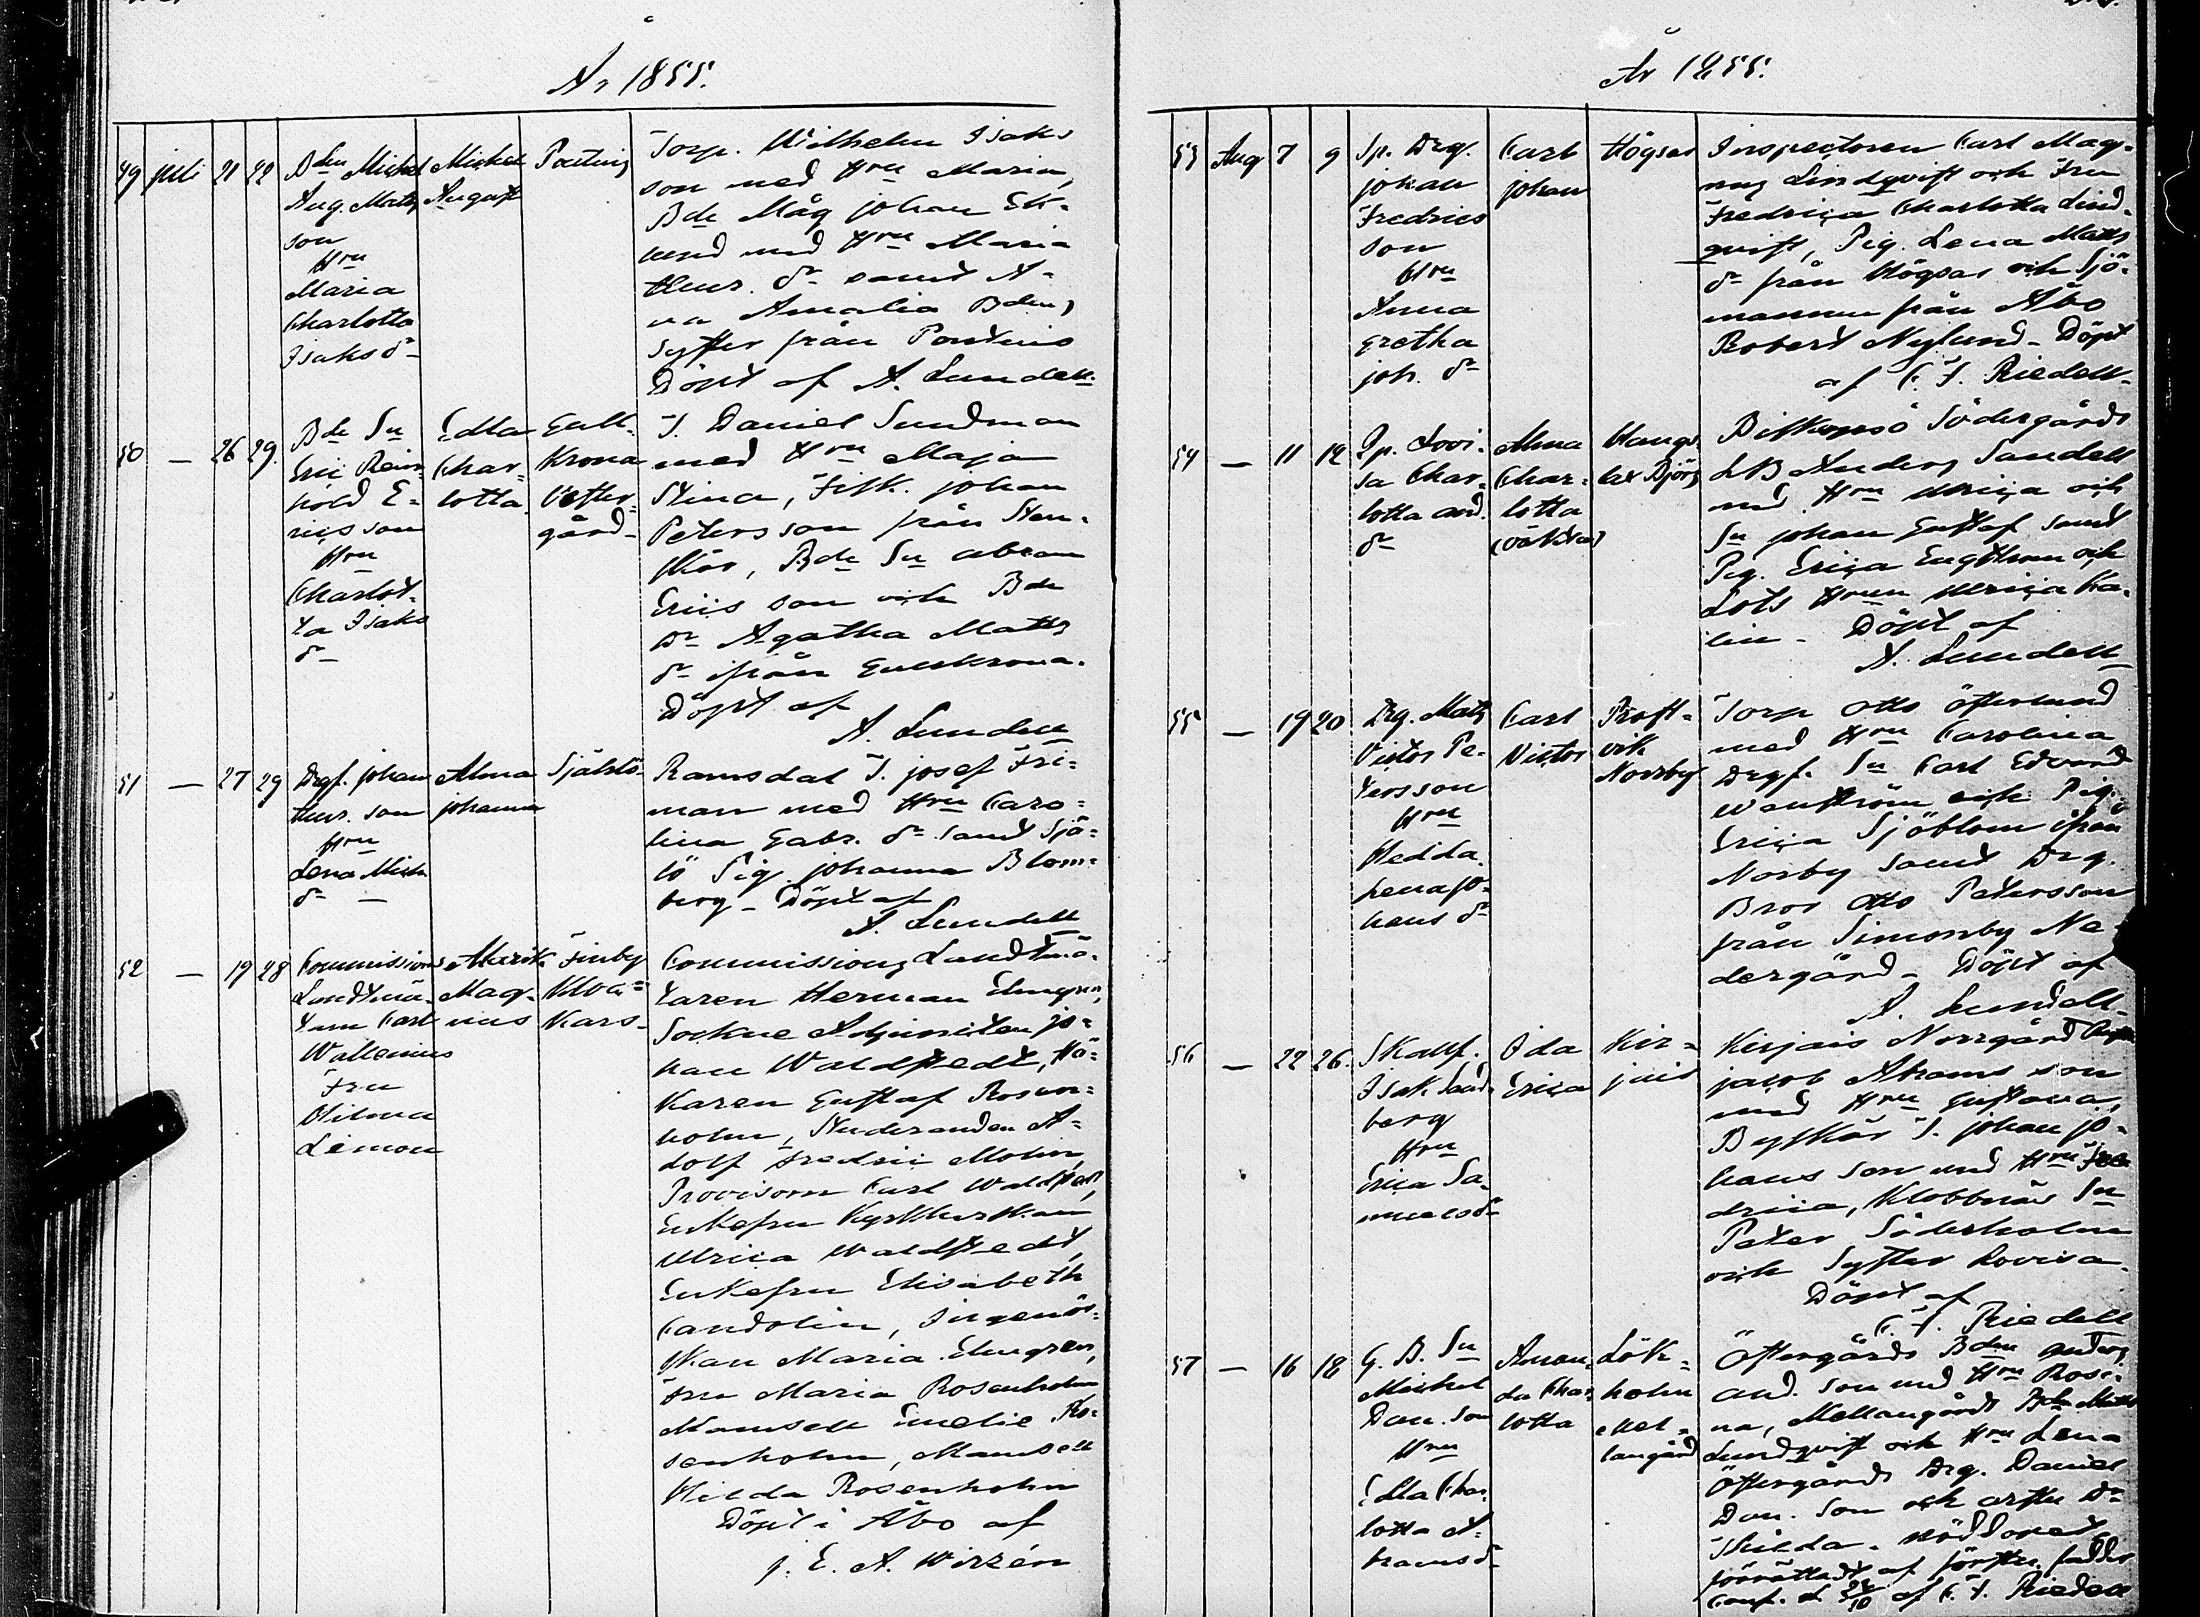 År 1855.
49 juli 21 22
Bden Michel
Aug. Mats
son
Hru
Maria
Charlotta
Isaksdr
Michel
August
Torp. Wilhelm Isaks
son med Hru Maria,
Bde Måg johan Ek-
lund med Hru Maria
Thms. dr samt A-
na Amalia Bdens
Syster från Pontins
Döpt af A. Lundell.
50 — 26 29.
Bde Sn
Eric Rein
hold E-
ricsson
Hru
Charlot-
ta Isaks
dr
Edla
Char-
lotta
Gull-
krona
Vester-
gård
T. Daniel Sundman
med Hru Maja
Stina, Fisk. johan
Petersson från Sten-
skär, Bde Sn abram
Erics son och Bde
Dr Agatha Mats
dr ifrån Gullkrona.
Döpt af
A. Lundell
51 — 27 29
johan
Thms. son
Hru
Lena Mich.
dr
Alma
johanna
Själslö
Ramsdal T. josef Fri-
man med Hru Caro-
lina Gabr. dr samt Sjä-
lö Pig. johanna Blom-
berg - Döpt af
A. Lundell
52 — 19 28
Commissions
Landtmä-
tarn Carl
Wallenius
Fru
Hilma
Lemon
Mag-
nus
Finby
Kloc-
kars
Commissions Landtmä-
taren Herman Elmgren,
Sockne Adjuncten jo-
han Waldstedt, Hä-
karen Gustaf Rosen-
holm, Studeranden A-
dolf Fredric Molin,
Provisorn Carl Waldstedt,
Enkefru Kyrkherskan
Ulrica Waldstedt,
Enkefru Elisabeth
Candolin, Ingeniörs-
skan Maria Elmgren,
Fru Maria Rosenholm
Mamsell Emelie Ro-
senholm, Mamsell
Hilda Rosenholm
Döpt i Åbo af
j. E. A. Wirzén
År 1855.
53 Aug 7 9
Sp. Drg.
johan
Fredrics
son
Hru
Anna
Gretha
joh. dr
Carl
johan
Högsar
Inspectoren Carl Mag-
nus Lindqvist och Fru
Fredrica Charlotta Lind-
qvist, Pig. Lena Mats
dr från Högsar och Sjö-
mannen från Åbo
Robert Nylund - Döpt
af C. F. Riedell
54 — 11 12
Lovi-
sa Char-
lotta and.
dr
Alma
Char-
lotta
(oäkta)
Södergårds
Anders Sandell
med Hru Ulrica och
Sn johan Gustaf samt
Pig. Erica Engblom och
Lots Hrun Ulrica Ka-
lin - Döpt af
A. Lundell
55 — 19 20
Drg. Mats
Victor Pe-
tersson
Hru
Hedda
Lena jo-
hans dr
Carl
Victor
Prost-
vik
Norrby
Torp Otto Österlund
med Hru Carolina
Drgf. Sn Carl Edvard
Wenström och Pig.
Erica Sjöblom ifrån
Norrby samt Drg.
Bror Otto Petersson
från Simonby Ne-
dergård - Döpt af
A. Lundell
56 — 22 26.
Skallf.
Isak Sand-
berg
Hru
Erica Sa-
muelsdr
Ida
Erica
Kir-
jais
Kirjais Norrgård
jacob Abrams son
med Hru Gustava,
Byskär T. johan jo-
hans son med Hru Fre
drica, Klobbnäs Sn
Peter Söderholm
och Syster Lovisa.
Döpt af
C. F. Riedell
57 — 16 18
G. B. Sn
Michel
Dan. son
Hru
Edla Char-
lotta A-
bramsdr
Aman-
da Char-
lotta
Lök-
holm
Mel-
langård
Östergårds Bden Anders
And. son med Hru Rosi-
na, Mellangårds Bde Mats
Lundqvist och Hru Lena
Östergårds Drg. Daniel
Dan. son och Dr
Hilda - Nöddopet
förrättadt af
Conf. d 24/10 af C. F. Riedell